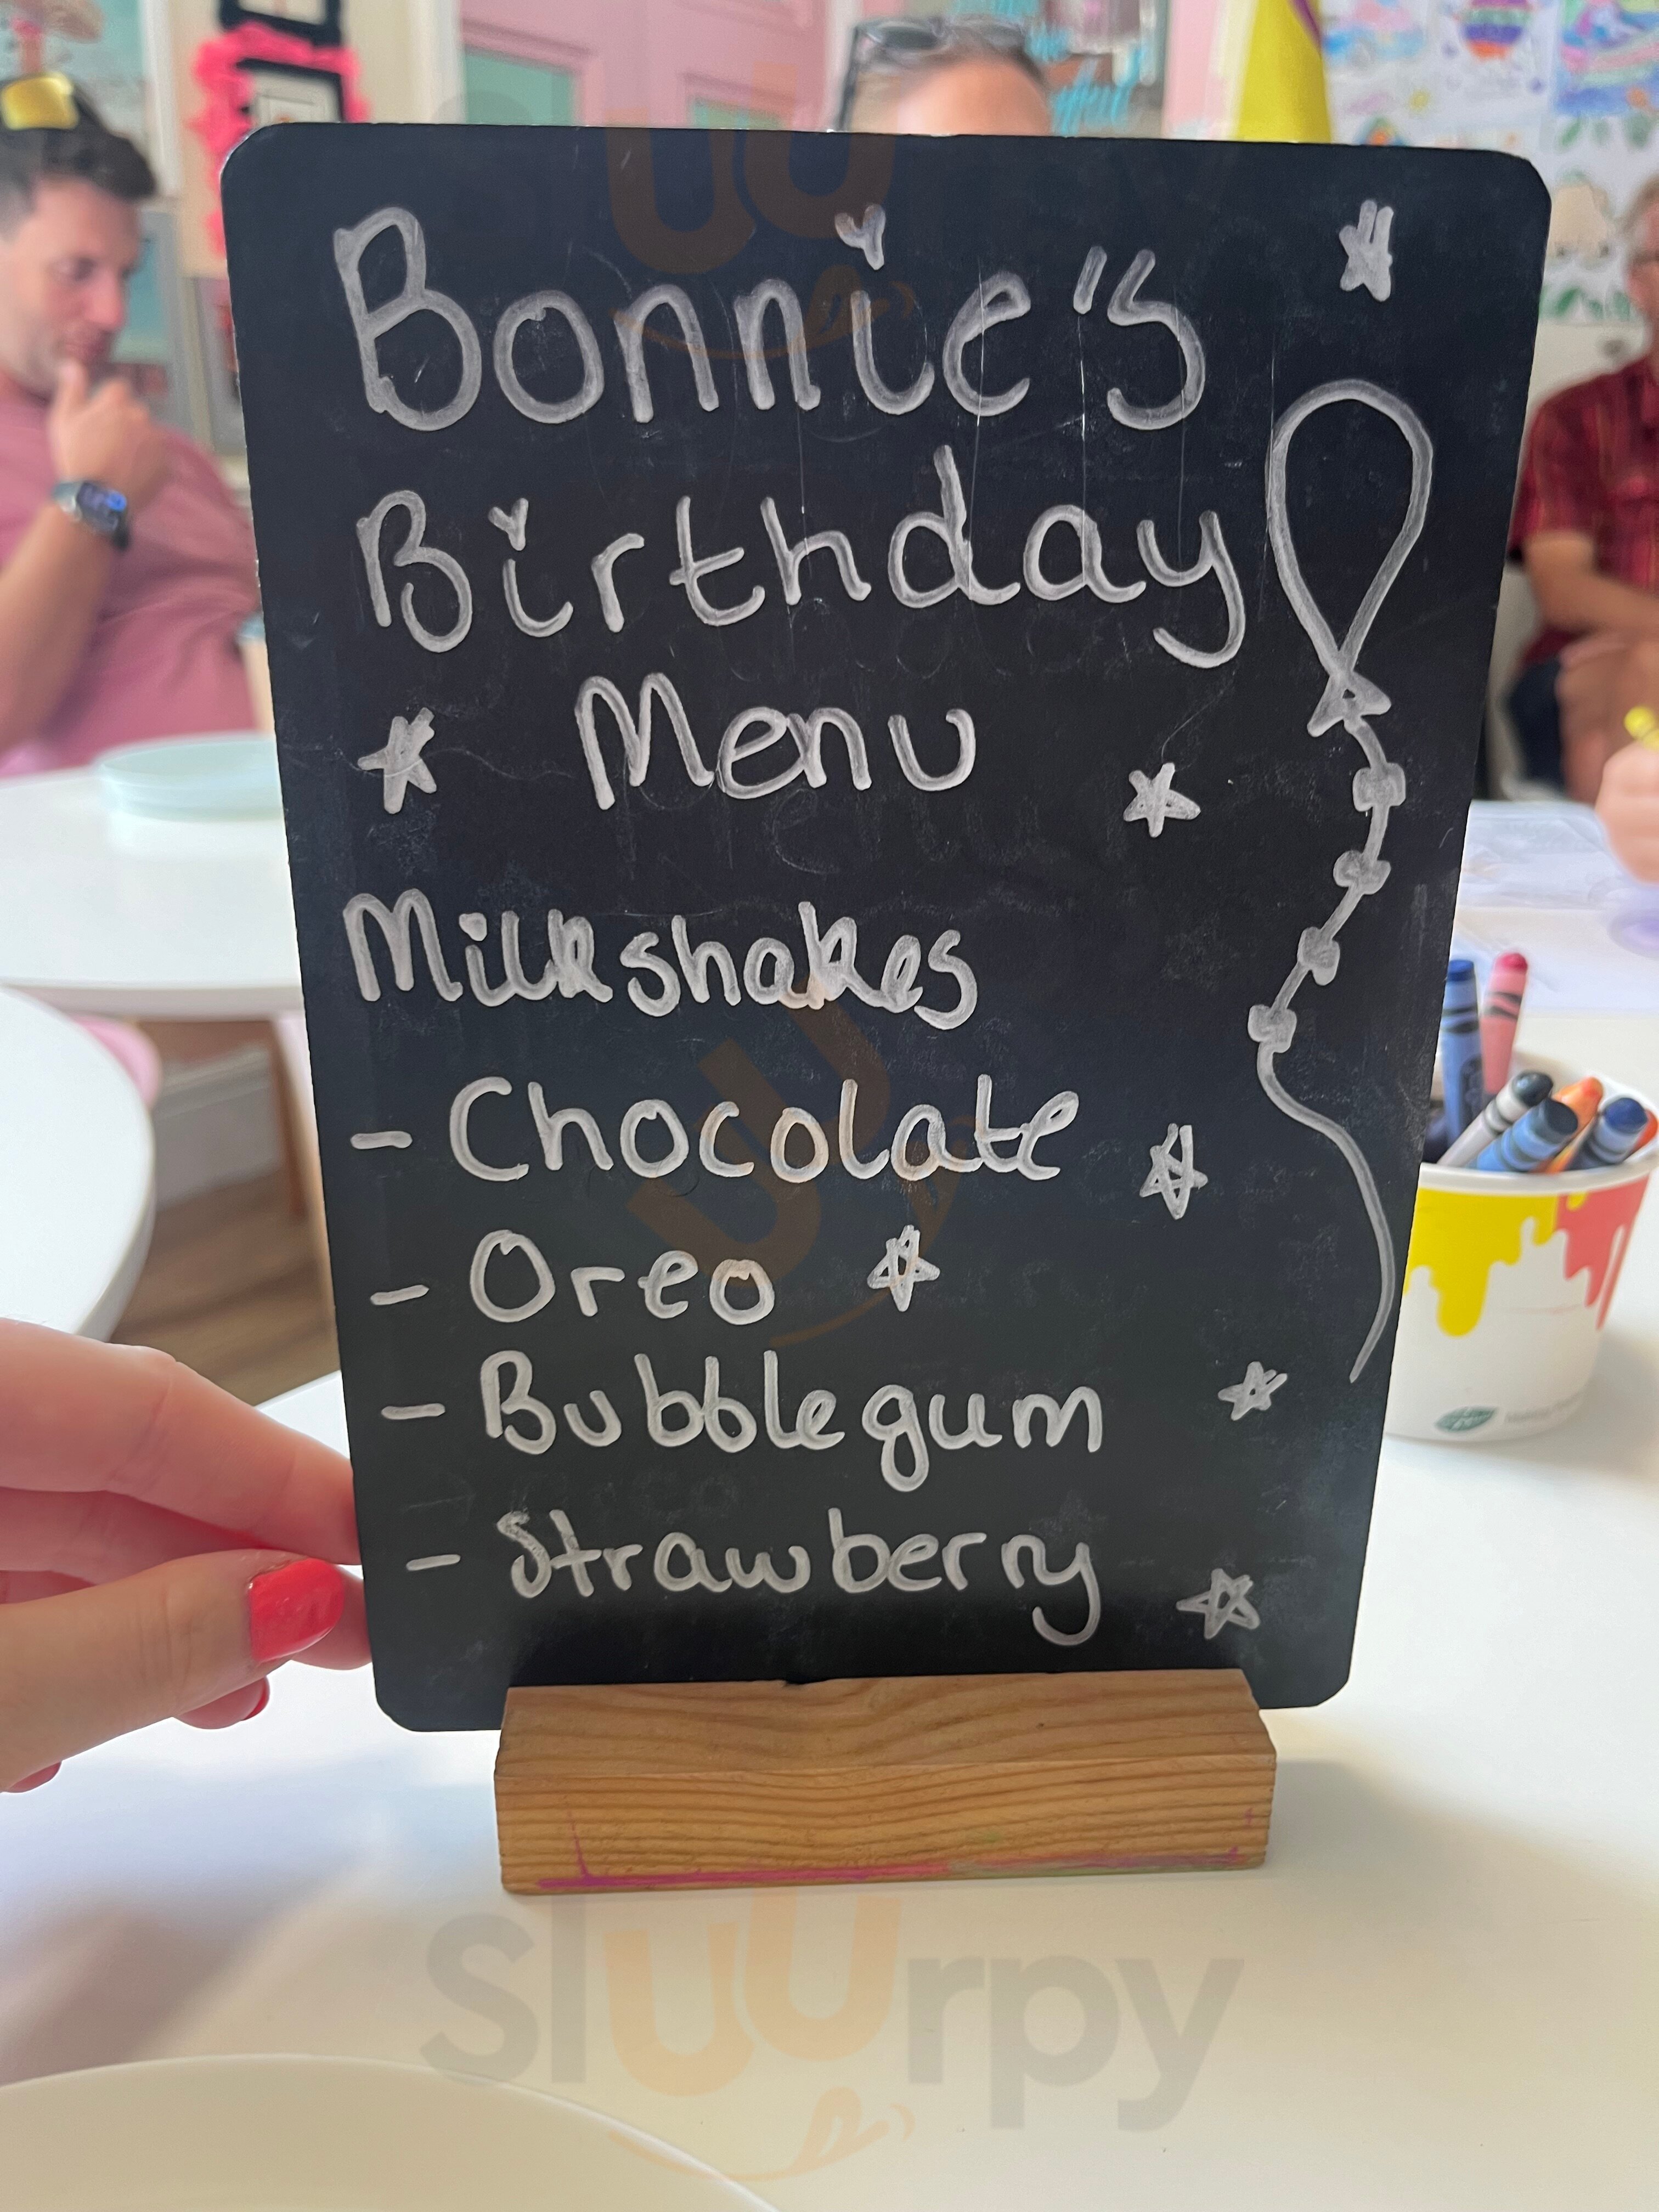 Bonnie's
Birthday
Menu
Milkshakes
- Chocolate
- Oreo
- Bubblegum
- Strawberry
sluurpy